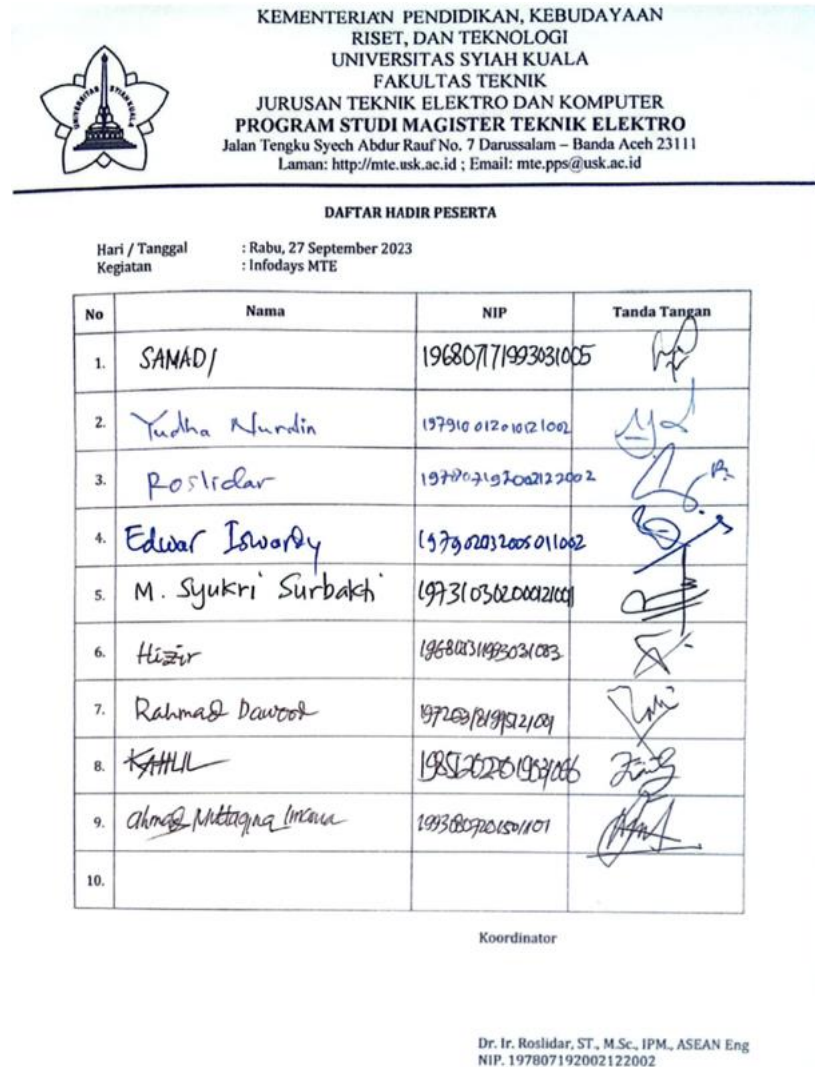 KEMENTERIAN PENDIDIKAN, KEBUDAYAAN
RISET, DAN TEKNOLOGI
UNIVERSITAS SYIAH KUALA
FAKULTAS TEKNIK
JURUSAN TEKNIK ELEKTRO DAN KOMPUTER
PROGRAM STUDI MAGISTER TEKNIK ELEKTRO
Jalan Tengku Syech Abdur Rauf No. 7 Darussalam – Banda Aceh 23111
Laman: http://mte.usk.ac.id ; Email: mte.pps@usk.ac.id
UNIVERSITAS SYIAH KUALA
DAFTAR HADIR PESERTA
Hari / Tanggal : Rabu, 27 September 2023
Kegiatan : Infodays MTE
No Nama NIP Tanda Tangan
1. SAMADI 196807171993031005
2. Yudha Nurdin 197910012010121002
3. Roslidar 197807192002122002
4. Edwar Iswardy 197902032005011002
5. M. Syukri Surbakti
6. Hizir
7. Rahmad Dawood
8. KAHLIL
9. Ahmad
10.
Koordinator
Dr. Ir. Roslidar, ST., M.Sc., IPM., ASEAN Eng
NIP. 197807192002122002